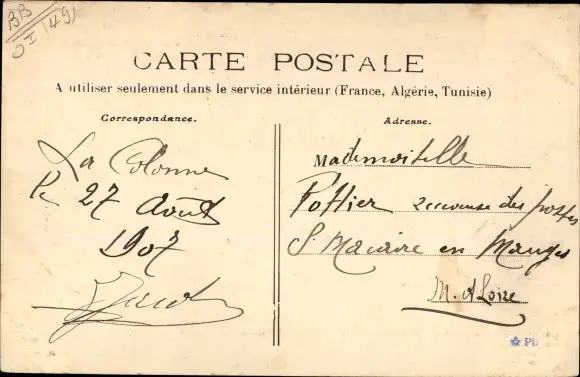 BB
OI (49)
CARTE POSTALE
A utiliser seulement dans le service intérieur (France, Algérie, Tunisie)
Correspondance.
Adresse.
La Colonne
le 27 Août
1907
Mademoiselle
Pottier receveuse des postes
St Macaire en Mauges
M. et Loire
PD